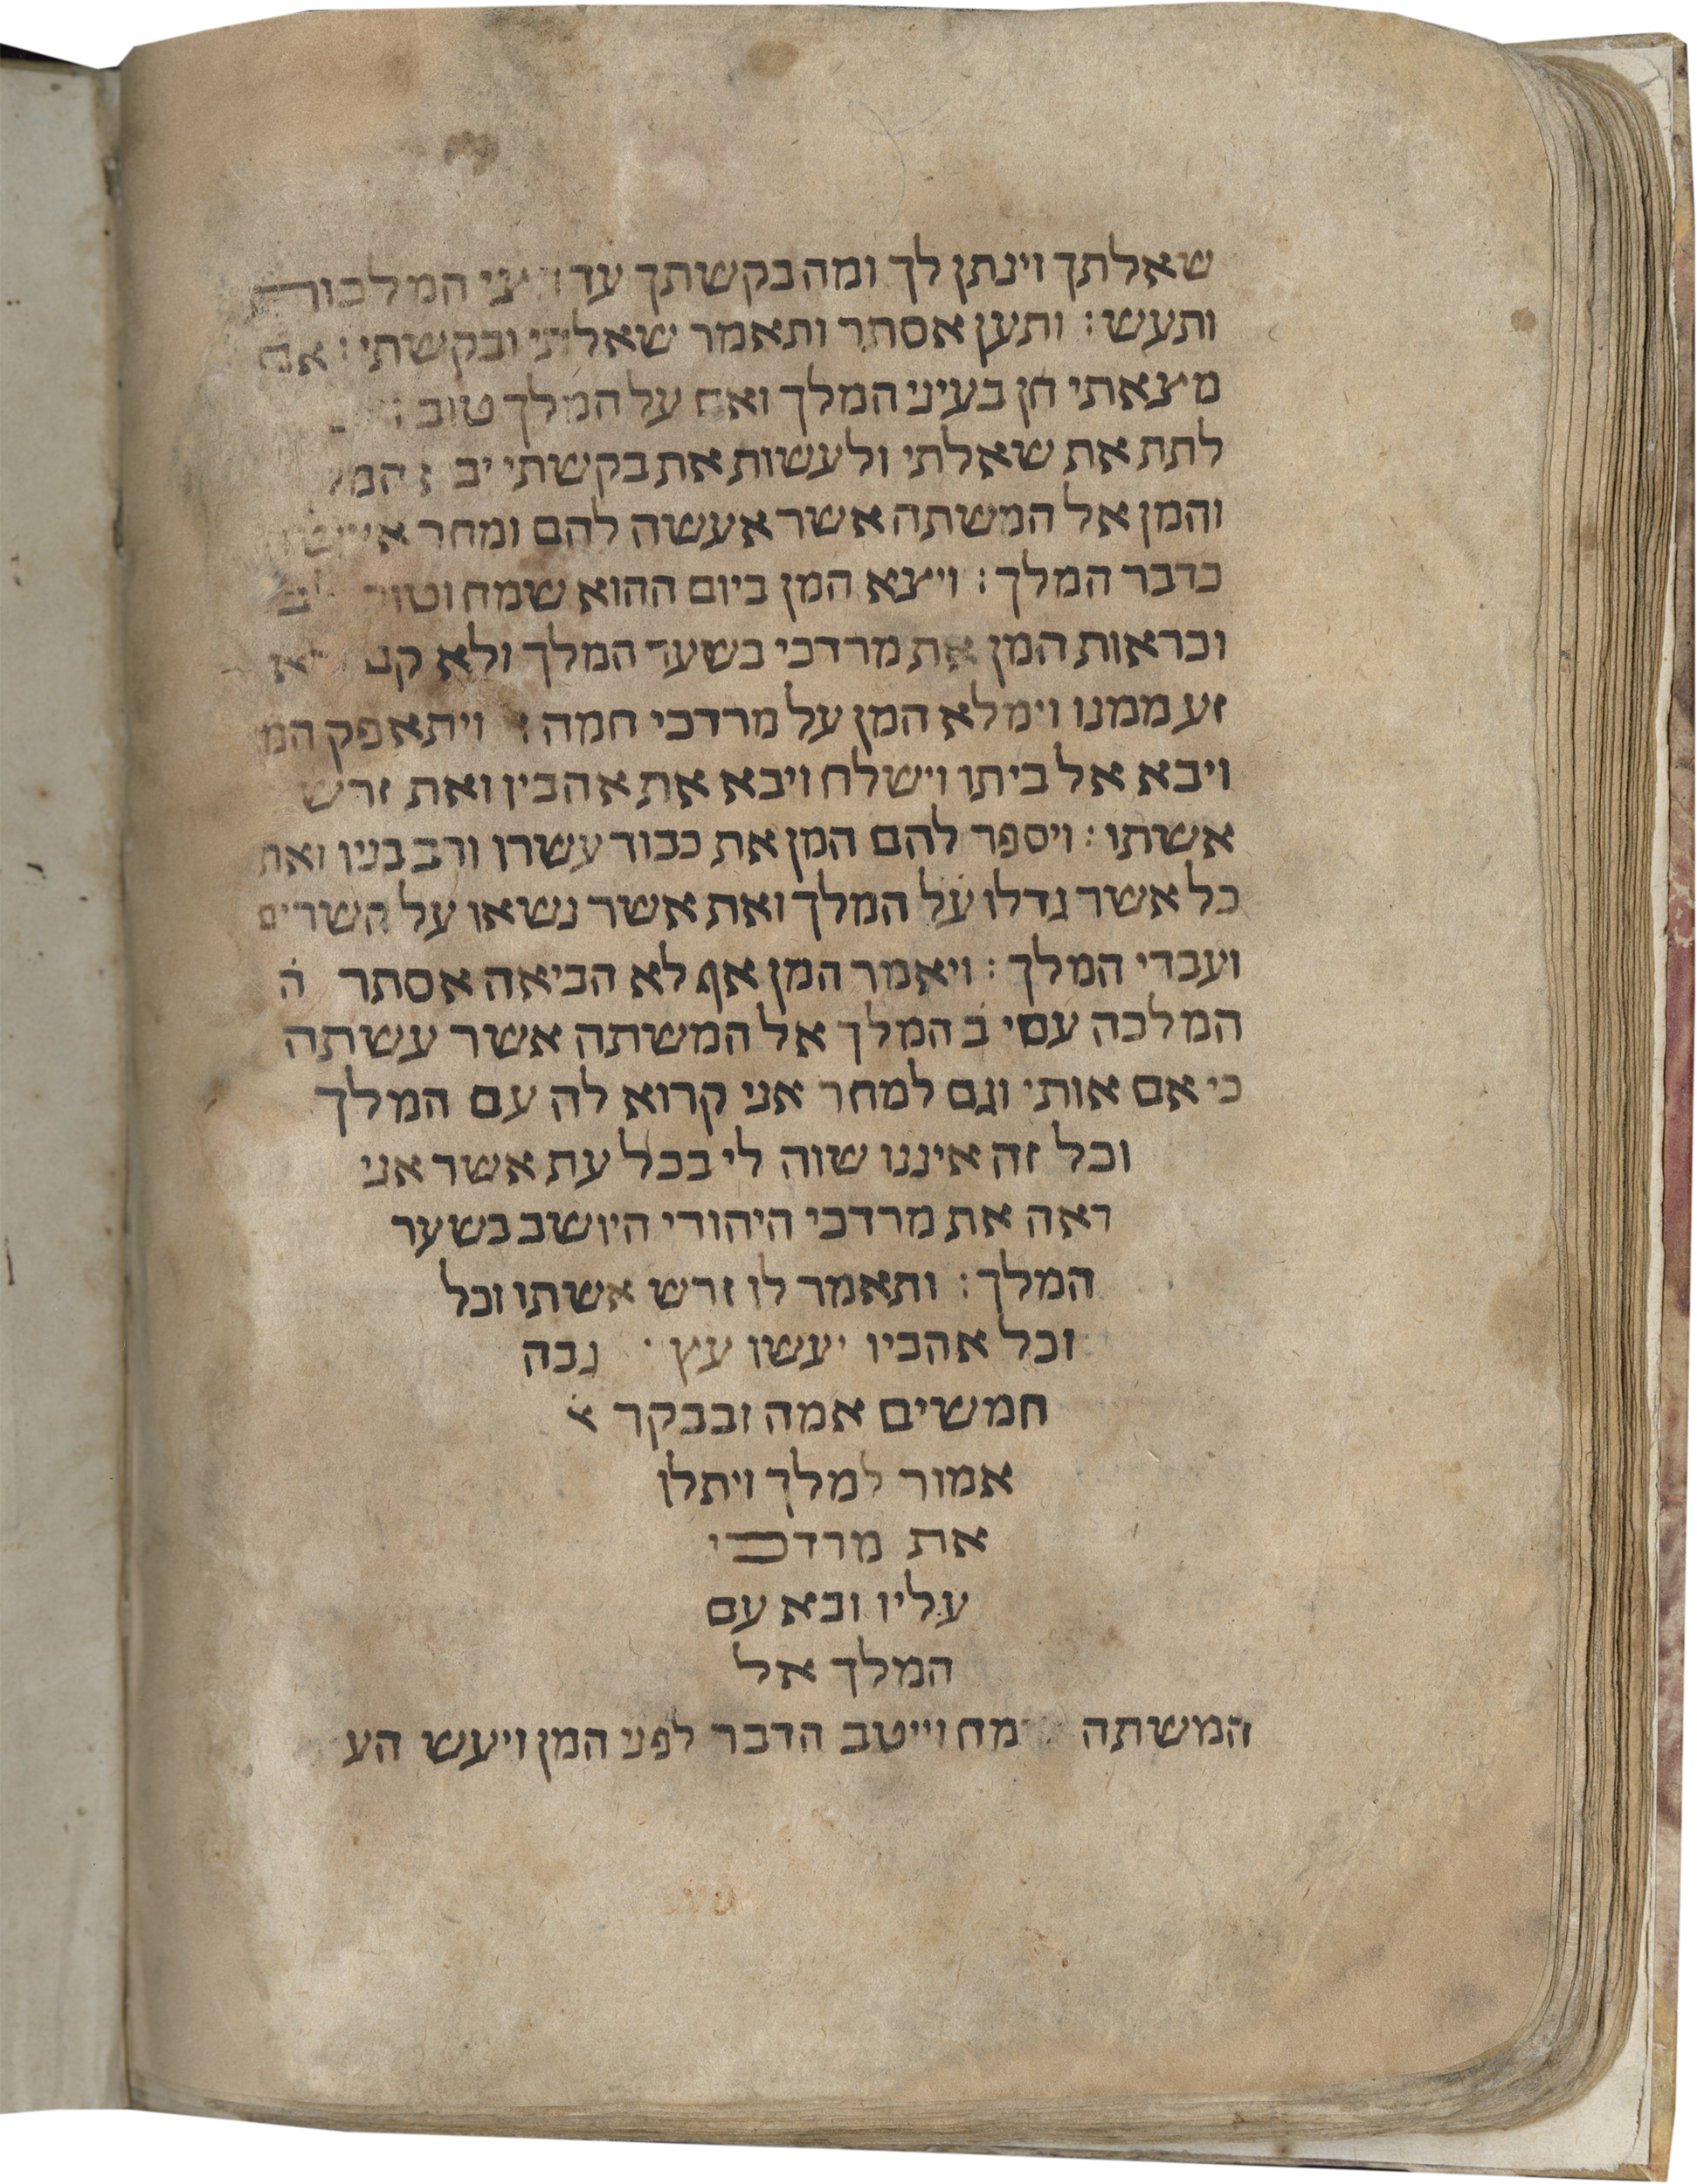 שאלתך וינתן לך ומה בקשתך עד חצי המלכות
ותעש : ותען אסתר ותאמר שאלתי ובקשתי : אם
מצאתי חן בעיני המלך ואם על המלך טוב :
לתת את שאלתי ולעשות את בקשתי
והמן אל המשתה אשר אעשה להם ומחר
כדבר המלך : ויצא המן ביום ההוא שמח וטוב לב
וכראות המן את מרדכי בשער המלך ולא
זע ממנו וימלא המן על מרדכי חמה : ויתאפק
ויבא אל ביתו וישלח ויבא את אהביו ואת זרש
אשתו : ויספר להם המן את כבוד עשרו ורב בניו ואת
כל אשר גדלו על המלך ואת אשר נשאו על השרים
ועבדי המלך : ויאמר המן אף לא הביאה אסתר ה
המלכה עם המלך אל המשתה אשר עשתה
כי אם אותי וגם למחר אני קרוא לה עם המלך
וכל זה איננו שוה לי בכל עת אשר אני
ראה את מרדכי היהודי היושב בשער
המלך : ותאמר לו זרש אשתו וכל
וכל אהביו יעשו עץ גבה
חמשים אמה ובבקר
אמור למלך ויתלו
את מרדכי
עליו ובא עם
המלך אל
המשתה וייטב הדבר לפני המן ויעש הע